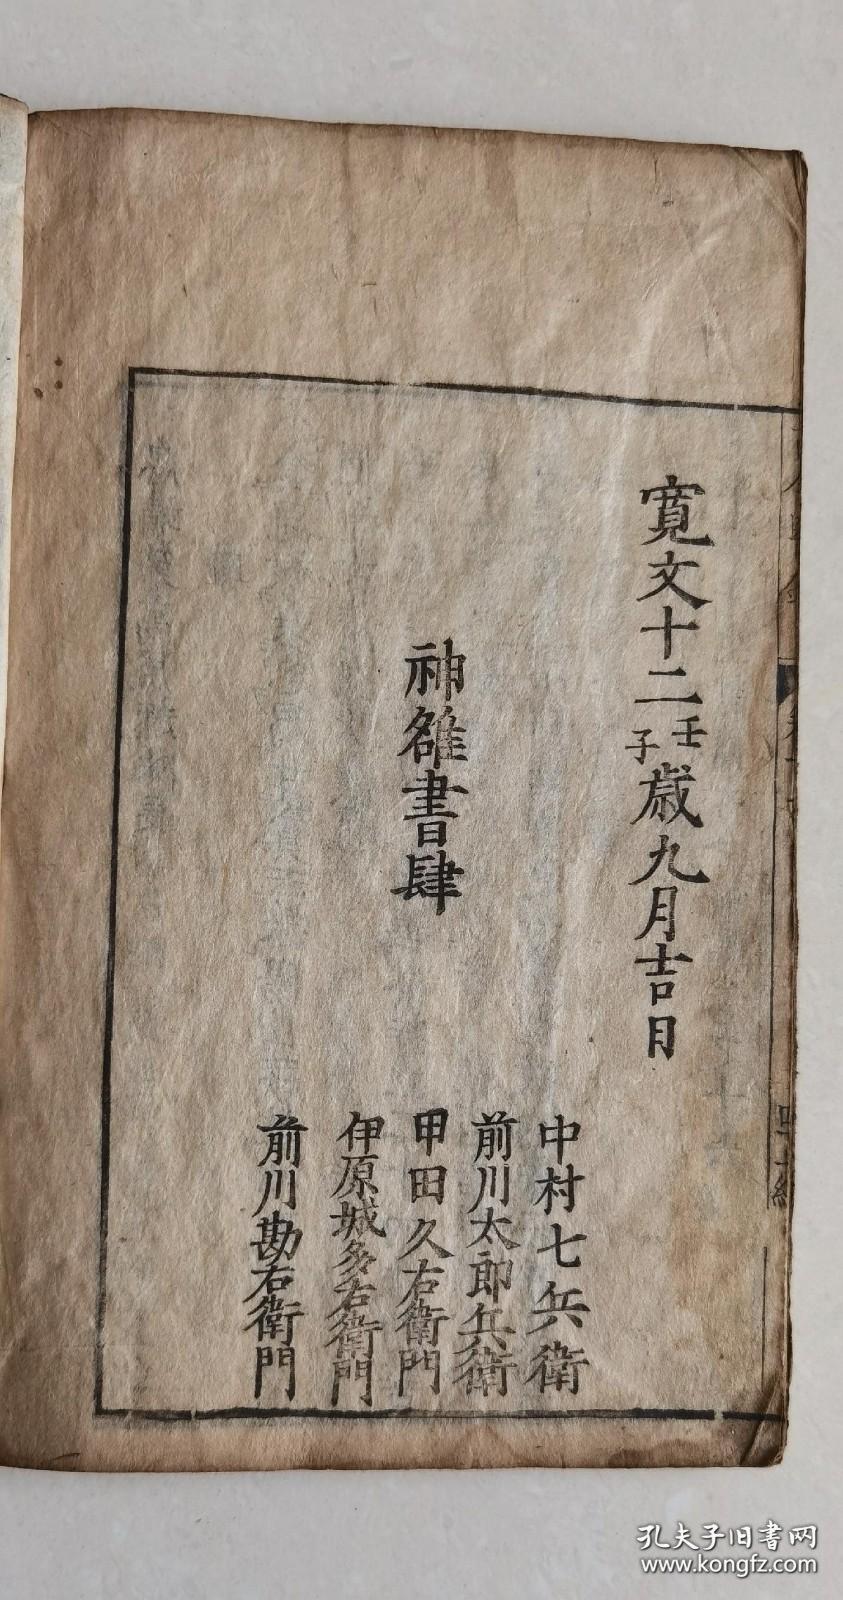 寛文十二壬子歳九月吉日
神雒書肆
中村七兵衛
前川太郎兵衛
甲田久右衛門
伊原城多右衛門
前川勘右衛門
孔夫子旧书网
www.kongfz.com